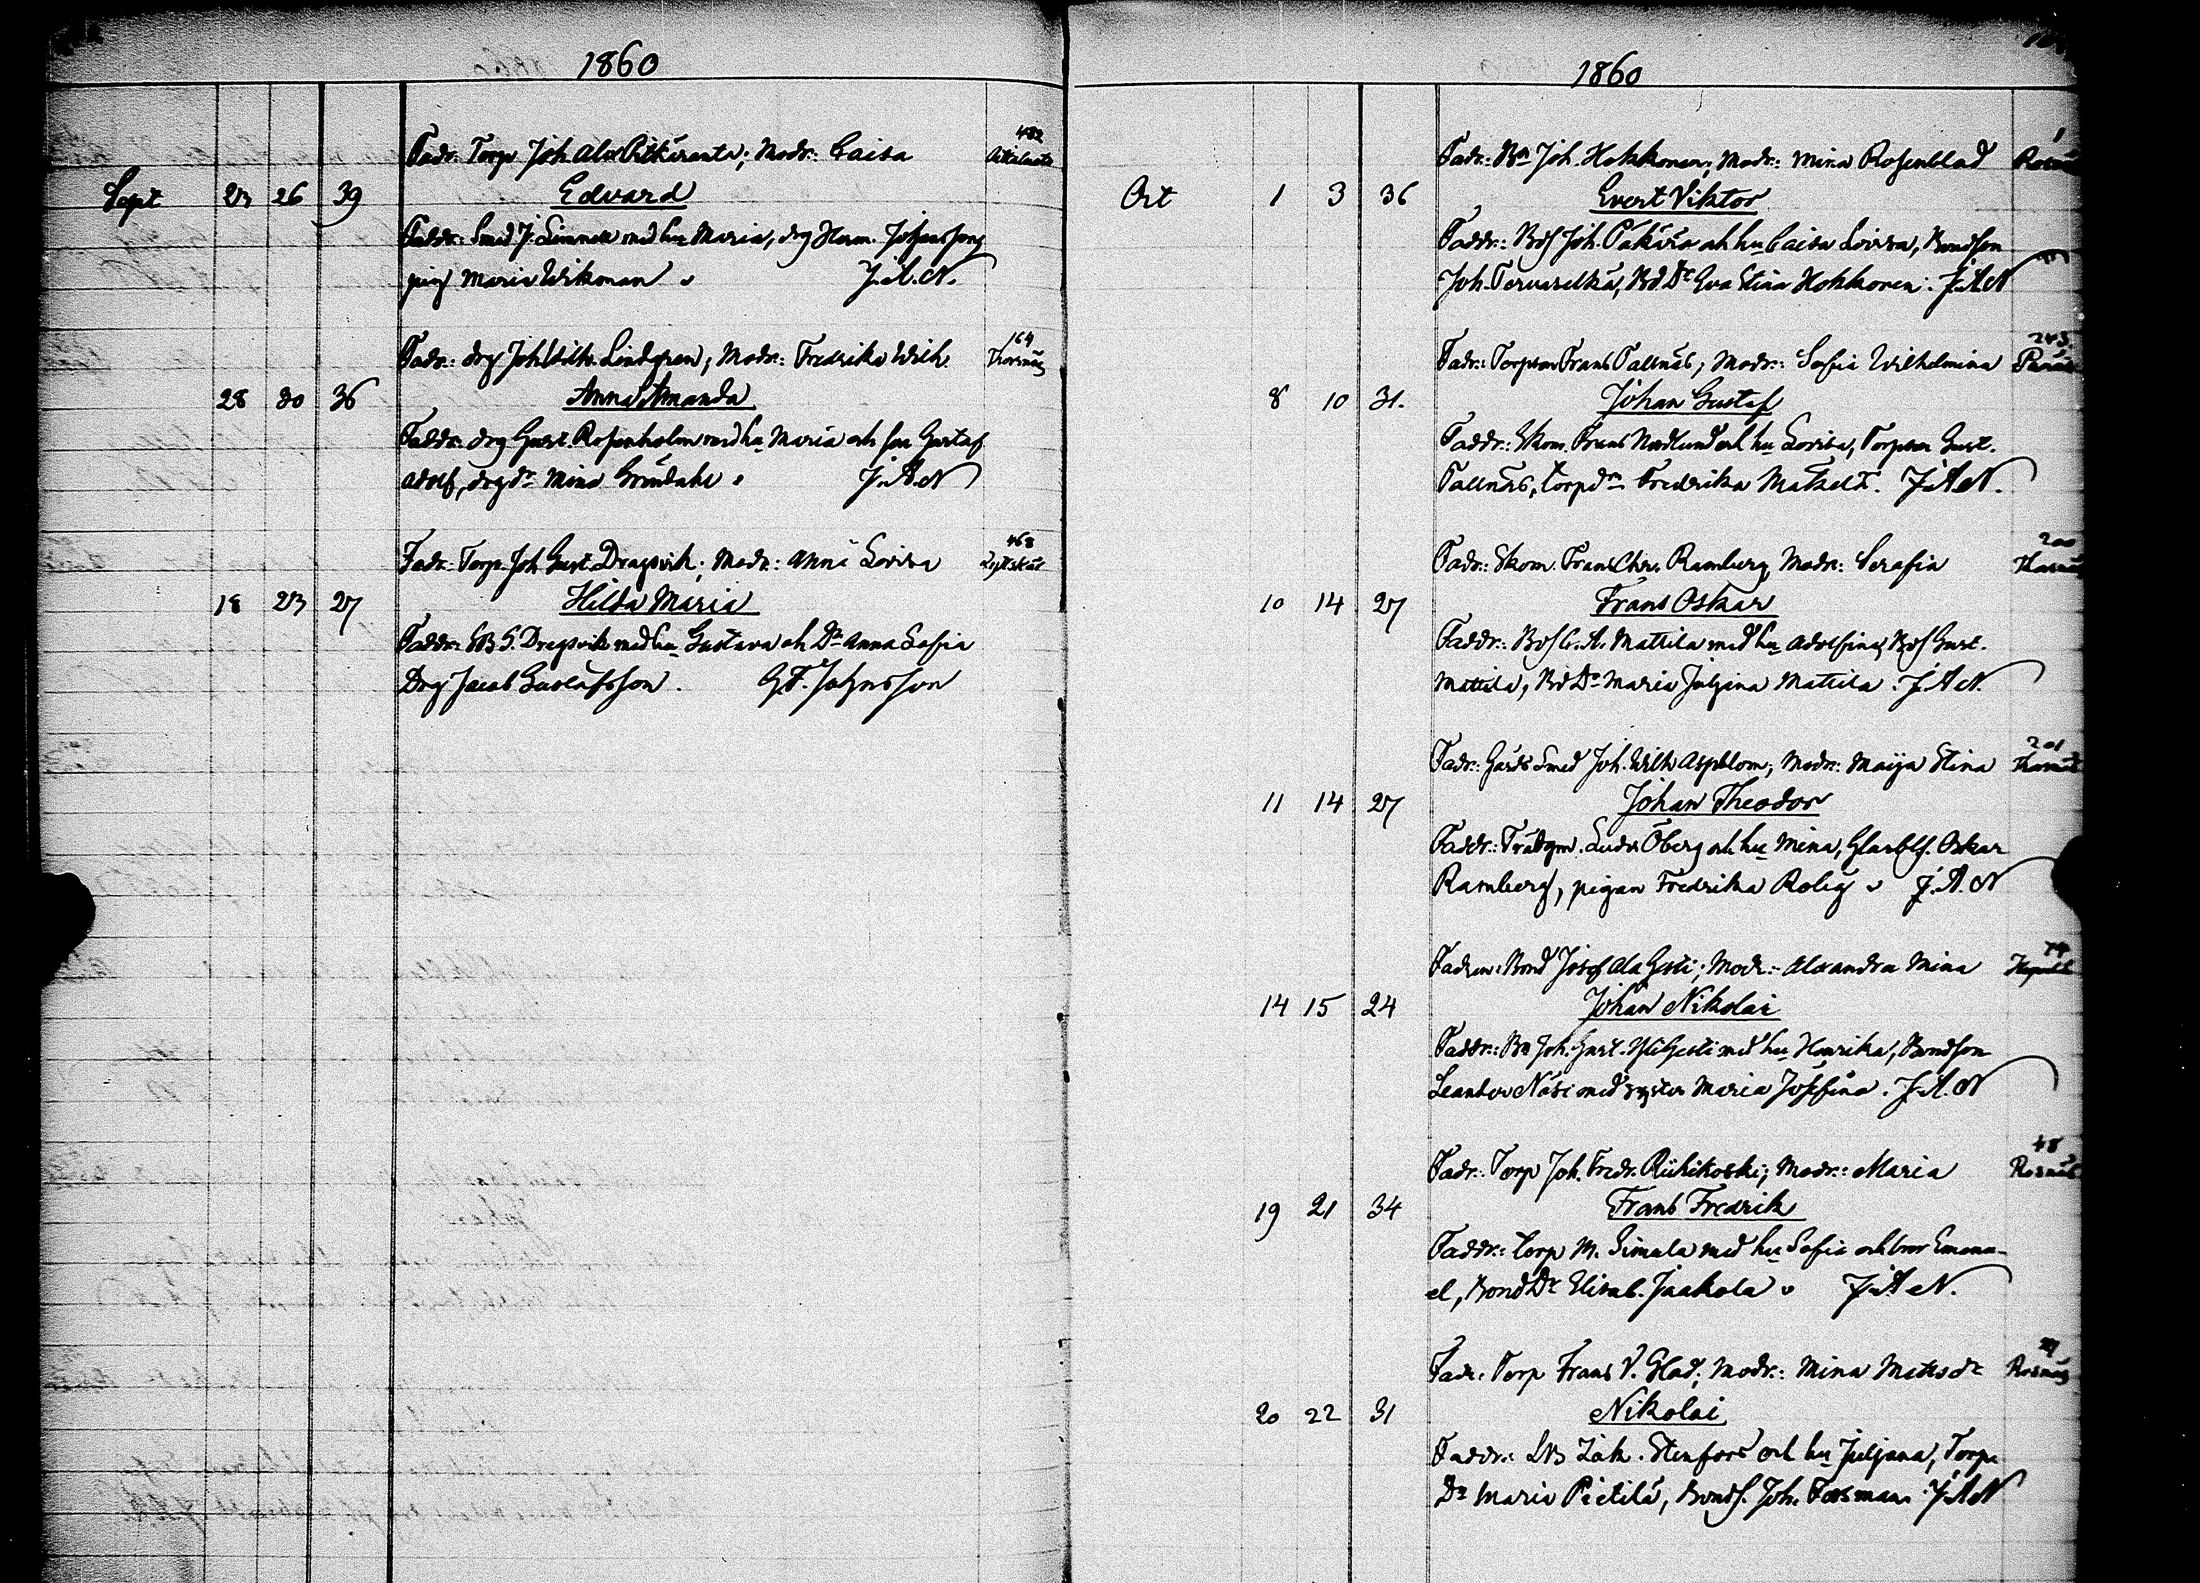 1860
Fadr: Torp. Joh. Alex Pitkäranta; Modr: Caisa 482
Sept 23 26 39 Edvard
Faddr: Smed J. Limnell med hu Maria, drg Herm. Johansson,
pig Maria Wikman J.A.N.
Fadr: drg Joh Wilh. Lindgren; Modr: Fredrika Wilh. 164
28 30 36 Anna Amanda
Faddr: drg Gust. Rosenholm med hu Maria och son Gustaf
Adolf, drgdr Mina Gröndahl J.A.N
Fadr: Torp. Joh Gust Dragsvik; Modr: Anna Lovisa 468
18 23 27 Hilda Maria
Faddr: G. Dragsvik med hu Gustava och Dr Anna Sofia
Drg Jacob Gustafsson. G.F. Johnsson
1860
Fadr: Bn Joh. Hokkonen; Modr: Mina Rosenblad 1
Oct 1 3 36 Evert Viktor
Faddr: Joh. och hu Caisa Lovisa, Bondson
Joh. Tervaselkä, Bd Dr Eva Stina Hokkonen. J.A.N
Fadr: Torparen Frans Tallnäs; Modr: Sofia Wilhelmina 243
8 10 31. Johan Gustaf
Faddr: Skom. Frans Nordlund och hu Lovisa, Torparen Gust.
Tallnäs, torpdr Fredrika J.A.N.
Fadr: Skom. Frans Chr. Ramberg, Modr: Serafia 200
10 14 27 Frans Oskar
Faddr: A. Mattila med hu Adolfina, Gust.
Mattila, Bd Dr Maria Juljana Mattila. J.A.N.
Fadr: Gårds Smed Joh. Wilh Aspblom; Modr: Maija Stina 201
11 14 27 Johan Theodor
Faddr: Trädgm. Ludv Öberg och hu Mina, Oskar
Ramberg, pigan Fredrika Rolig J.A.N
Fadren: Bond Josef Ala Gesti; Modr: Alexandra Mina 74
14 15 24 Johan Nikolai
Faddr: Bn Joh. Gust. Yli Gesti med hu Henrika, Bondson
Leander Näsi med syster Maria Josefina. J.A.N
Fadr: Torp Joh. Fredr. Riihikoski; Modr: Maria 48
19 21 34 Frans Fredrik
Faddr: torp M. Simula med hu Sofia och bror Emanu-
el, Bond Dr Elisab. Jaakola J.A.N.
Fadr: Torp Frans V. Glad; Modr: Mina Matsdr Rosnäs
20 22 31 Nikolai
Faddr: Zak. Stenfors och hu Juljana, Torp
Dr Maria Pietilä, Bonds. Joh. Forsman J.A.N